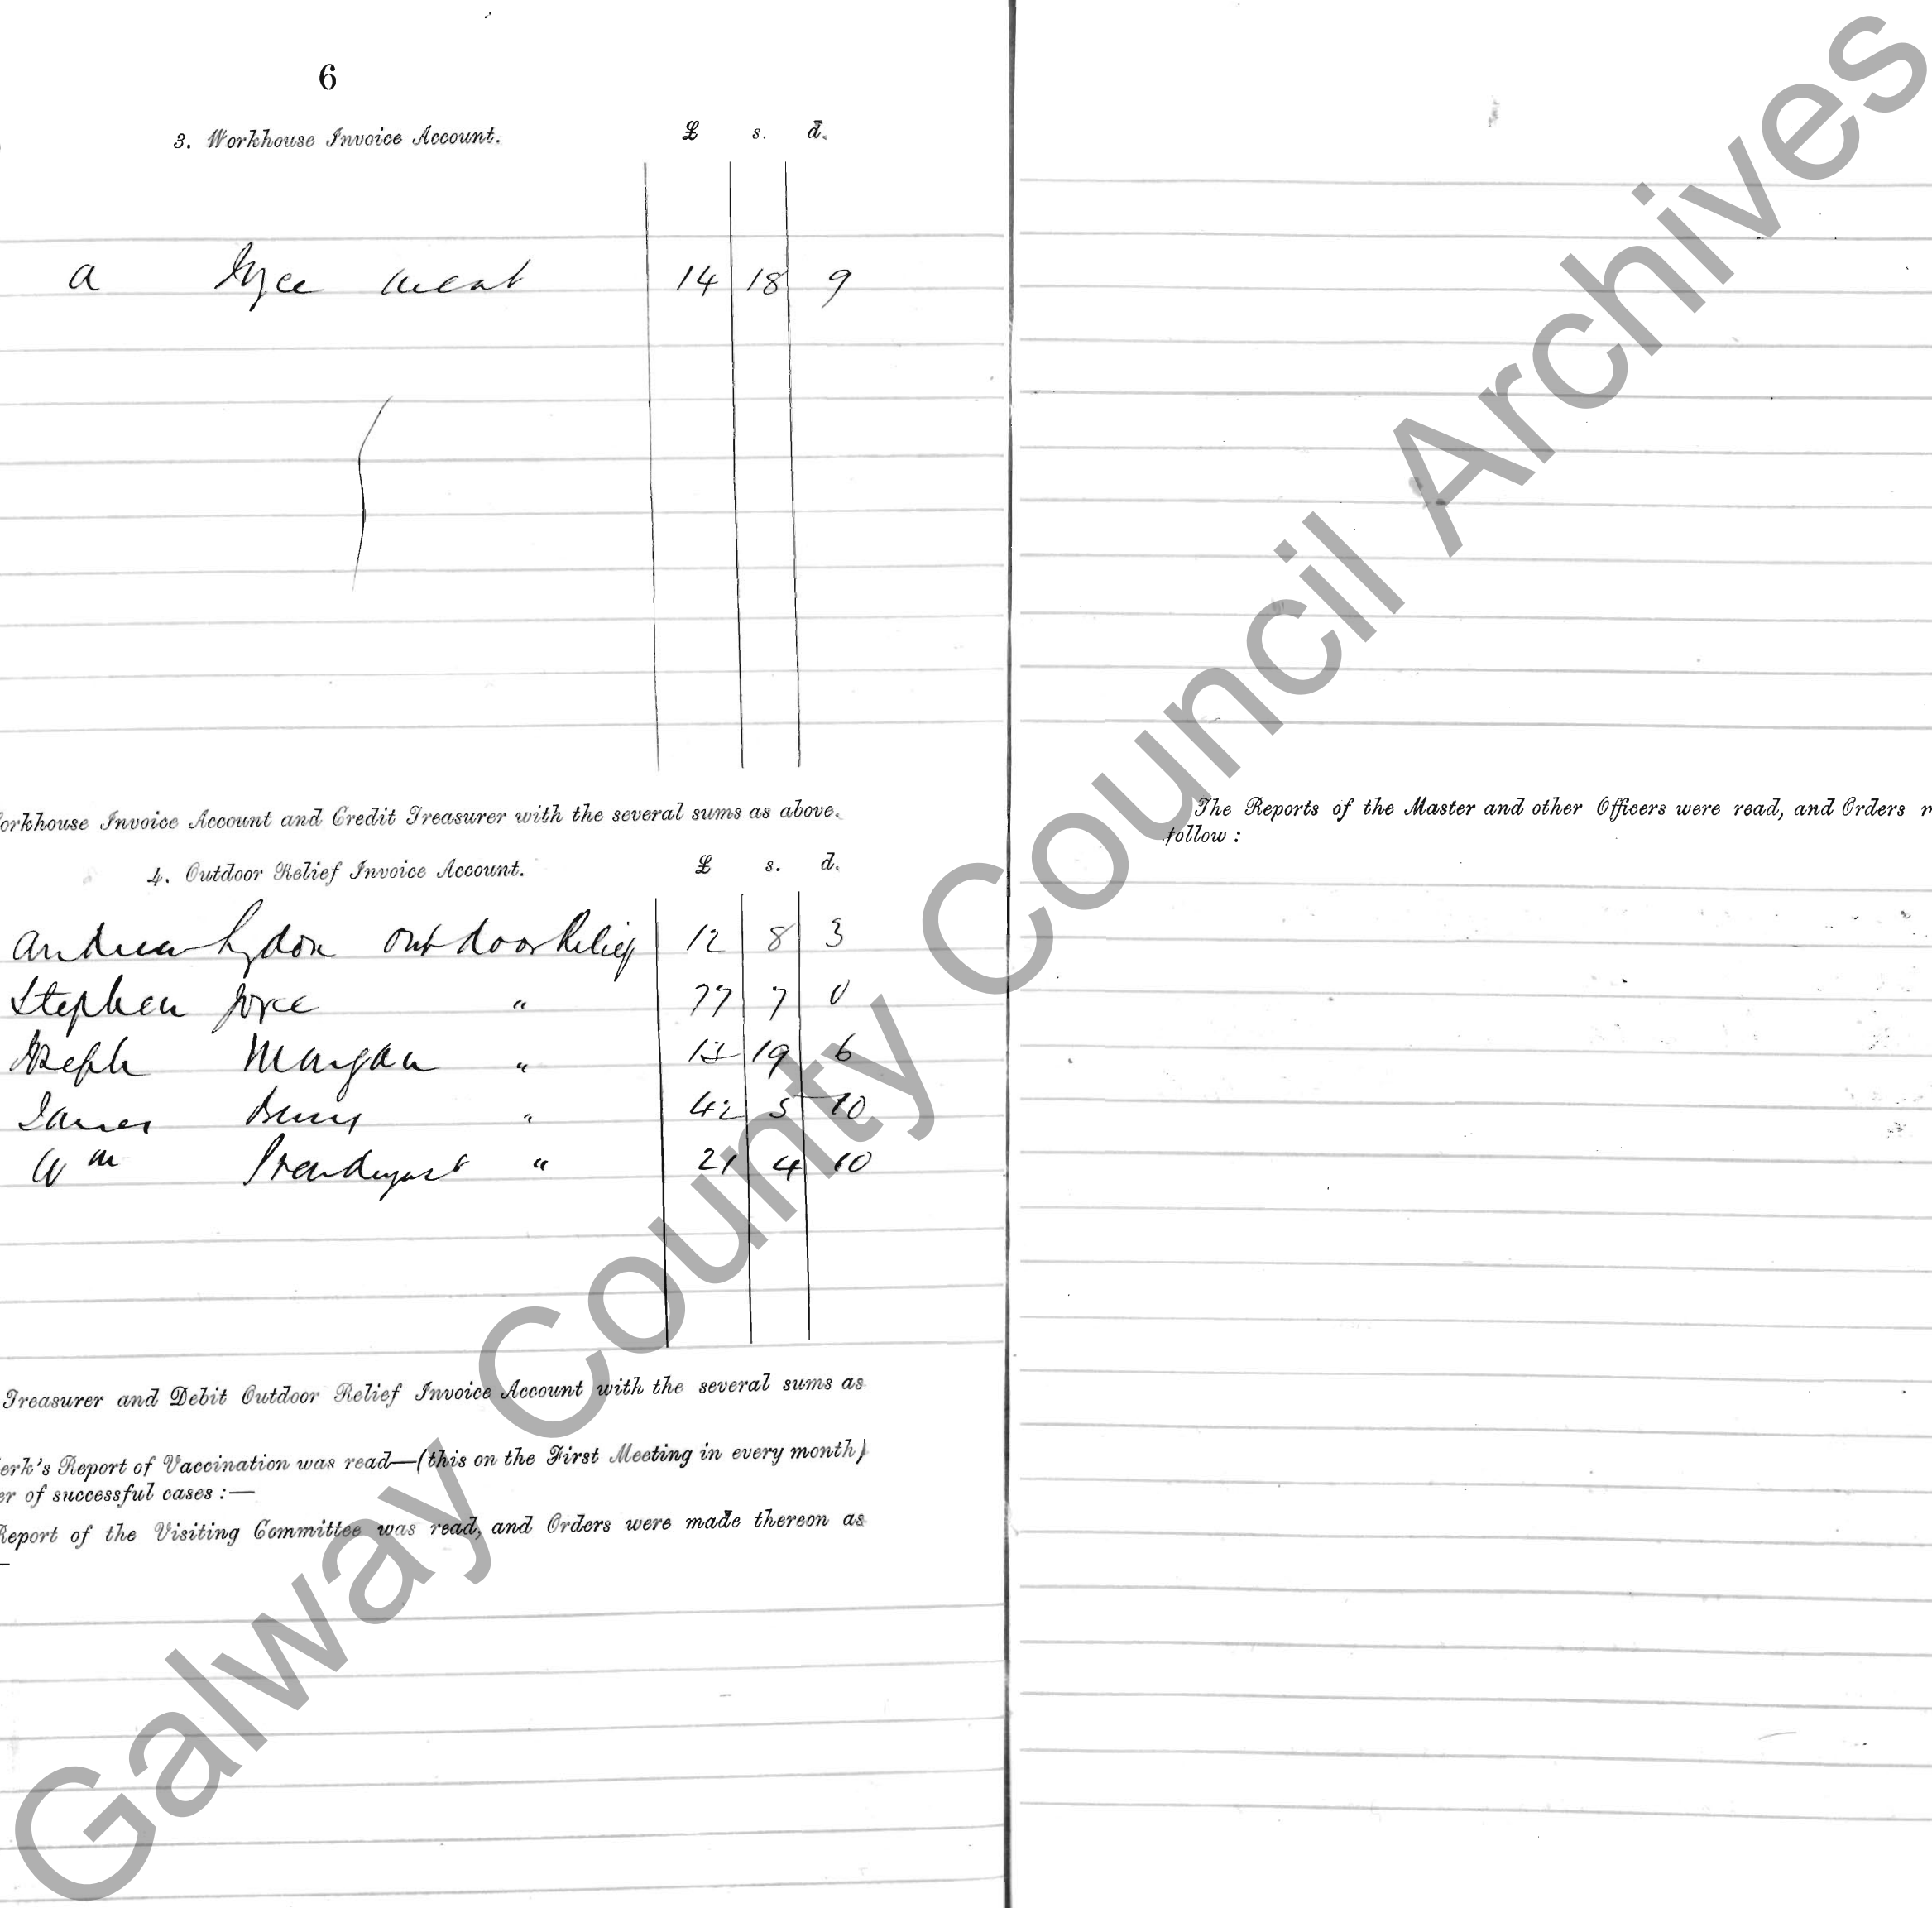 6
3. Workhouse Invoice Account. £ s. d.
a Meat 14 18 9
orkhouse Invoice Account and Credit Treasurer with the several sums as above.
4. Outdoor Relief Invoice Account. £ s. d.
Andrew Lydon Outdoor Relief 12 8 3
Stephen Joyce " 77 7 0
Joseph Mongan " 19 6
James " 42 5 10
Wm Prendergast " 21 4 10
Treasurer and Debit Outdoor Relief Invoice Account with the several sums as
erk's Report of Vaccination was read—(this on the First Meeting in every month)
er of successful cases :—
Report of the Visiting Committee was read, and Orders were made thereon as
—
The Reports of the Master and other Officers were read, and Orders
follow :
Galway County Council Archives